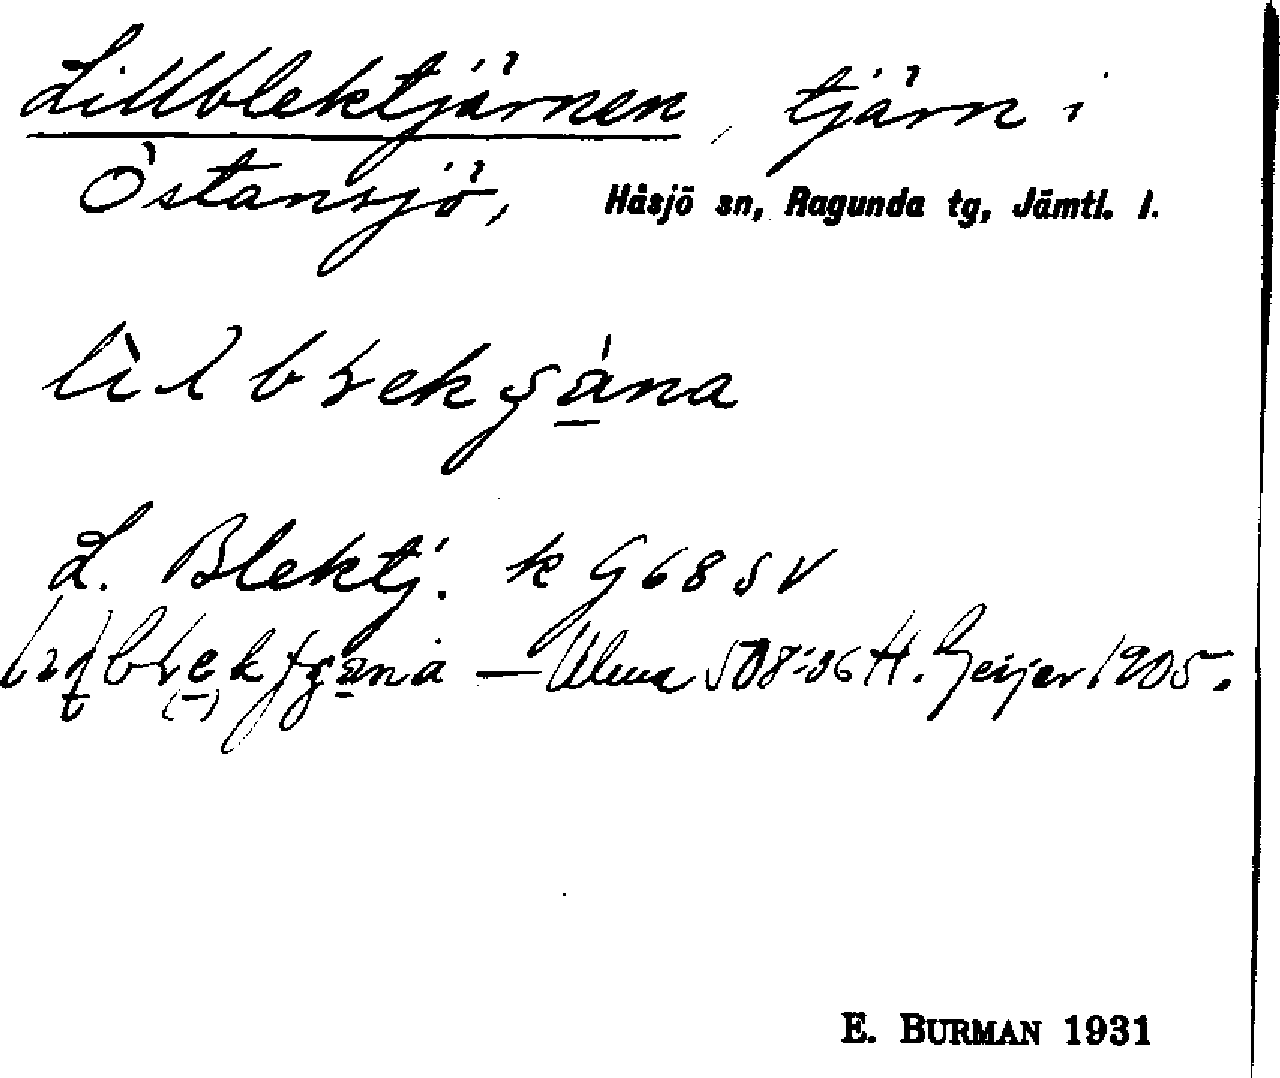 Lillblektjärnen, tjärn i
Östansjö, Håsjö sn, Ragunda tg, Jämtl. l.
L. Blektj. k G 68 SV
— Ulma 508:06 H. Geijer 1905.
E. BURMAN 1931